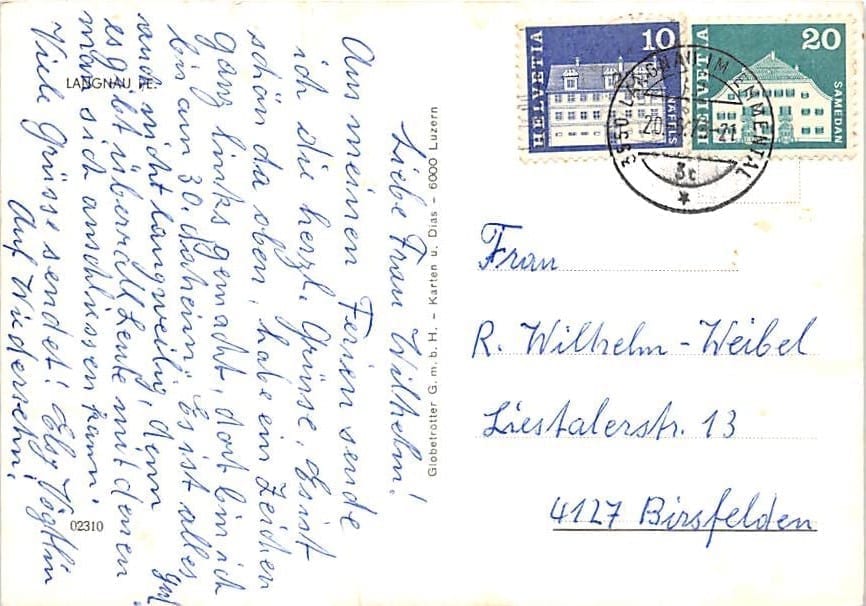 LANGNAU i.E.
Liebe Frau Wilhelm!
Aus meinen Ferien sende
ich die herzl. Grüsse. Es ist
schön da oben, habe ein Zeichen
ganz links gemacht, dort bin ich
bin am 30. daheim. Es ist alles
and nicht langweilig, denn gut
es gibt überall Leute mit denen
man sich anschliessen kann.
Viele Grüsse sendet! Elsy Vögtlin
Auf Wiedersehn!
02310
Globetrotter G.m.b.H. – Karten u. Dias – 6000 Luzern
HELVETIA
10
NÄFELS
HELVETIA
20
SAMEDAN
3550 LANGNAU IM EMMENTAL
3c
Frau
R. Wilhelm-Weibel
Liestalerstr. 13
4127 Birsfelden